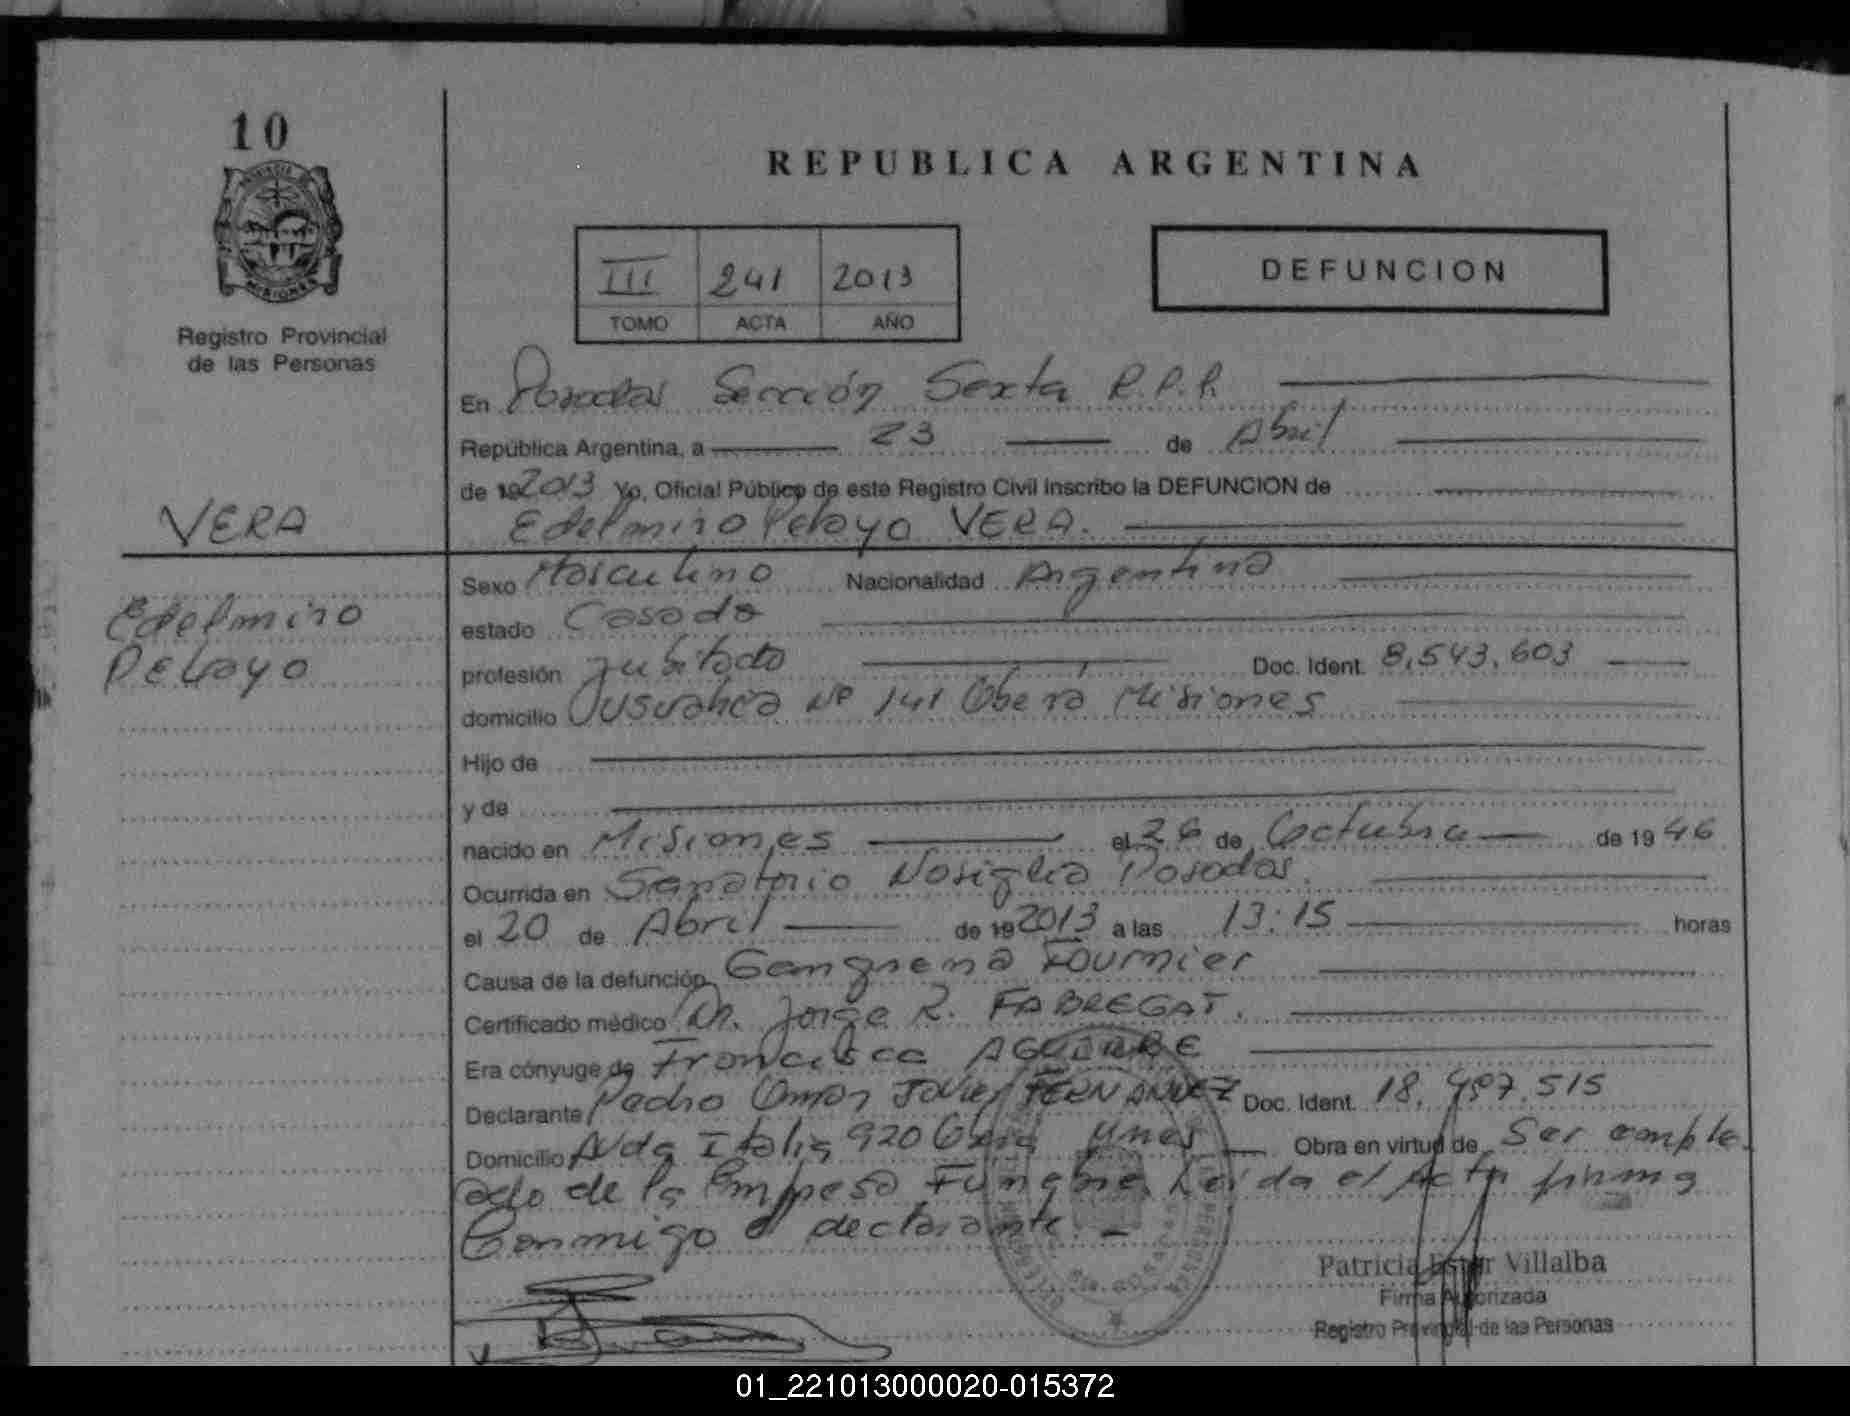 10
REPUBLICA ARGENTINA
III 241 2013
TOMO ACTA AÑO
DEFUNCION
Registro Provincial
de las Personas
En Posadas Sección Sexta R.P.P.
República Argentina, a 23 de Abril
de 192013 Yo, Oficial Público de este Registro Civil inscribo la DEFUNCION de
VERA
Edelmiro Pelayo VERA.
Sexo Masculino Nacionalidad Argentina
Edelmiro
estado Casado
Pelayo
profesión Jubilado Doc. Ident. 8,543,603
domicilio Nº 141 Oberá Misiones
Hijo de
y de
nacido en Misiones el 26 de Octubre de 1946
Ocurrida en Sanatorio Nosiglia Posadas.
el 20 de Abril de 192013 a las 13:15 horas
Causa de la defunción Gangrena Fournier
Certificado médico Dr. Jorge R. FABREGAT.
Era cónyuge de Francisca AGUIRRE
Declarante Pedro Omar Javier FERNANDEZ Doc. Ident. 18,497.515
Domicilio Avda Italia 920 Oberá Mnes Obra en virtud de Ser emple
ado de la Empresa Funebre. Leida el Acta firma
Conmigo el declarante. -
Patricia Ester Villalba
Firma Autorizada
Registro Provincial de las Personas
01_221013000020-015372